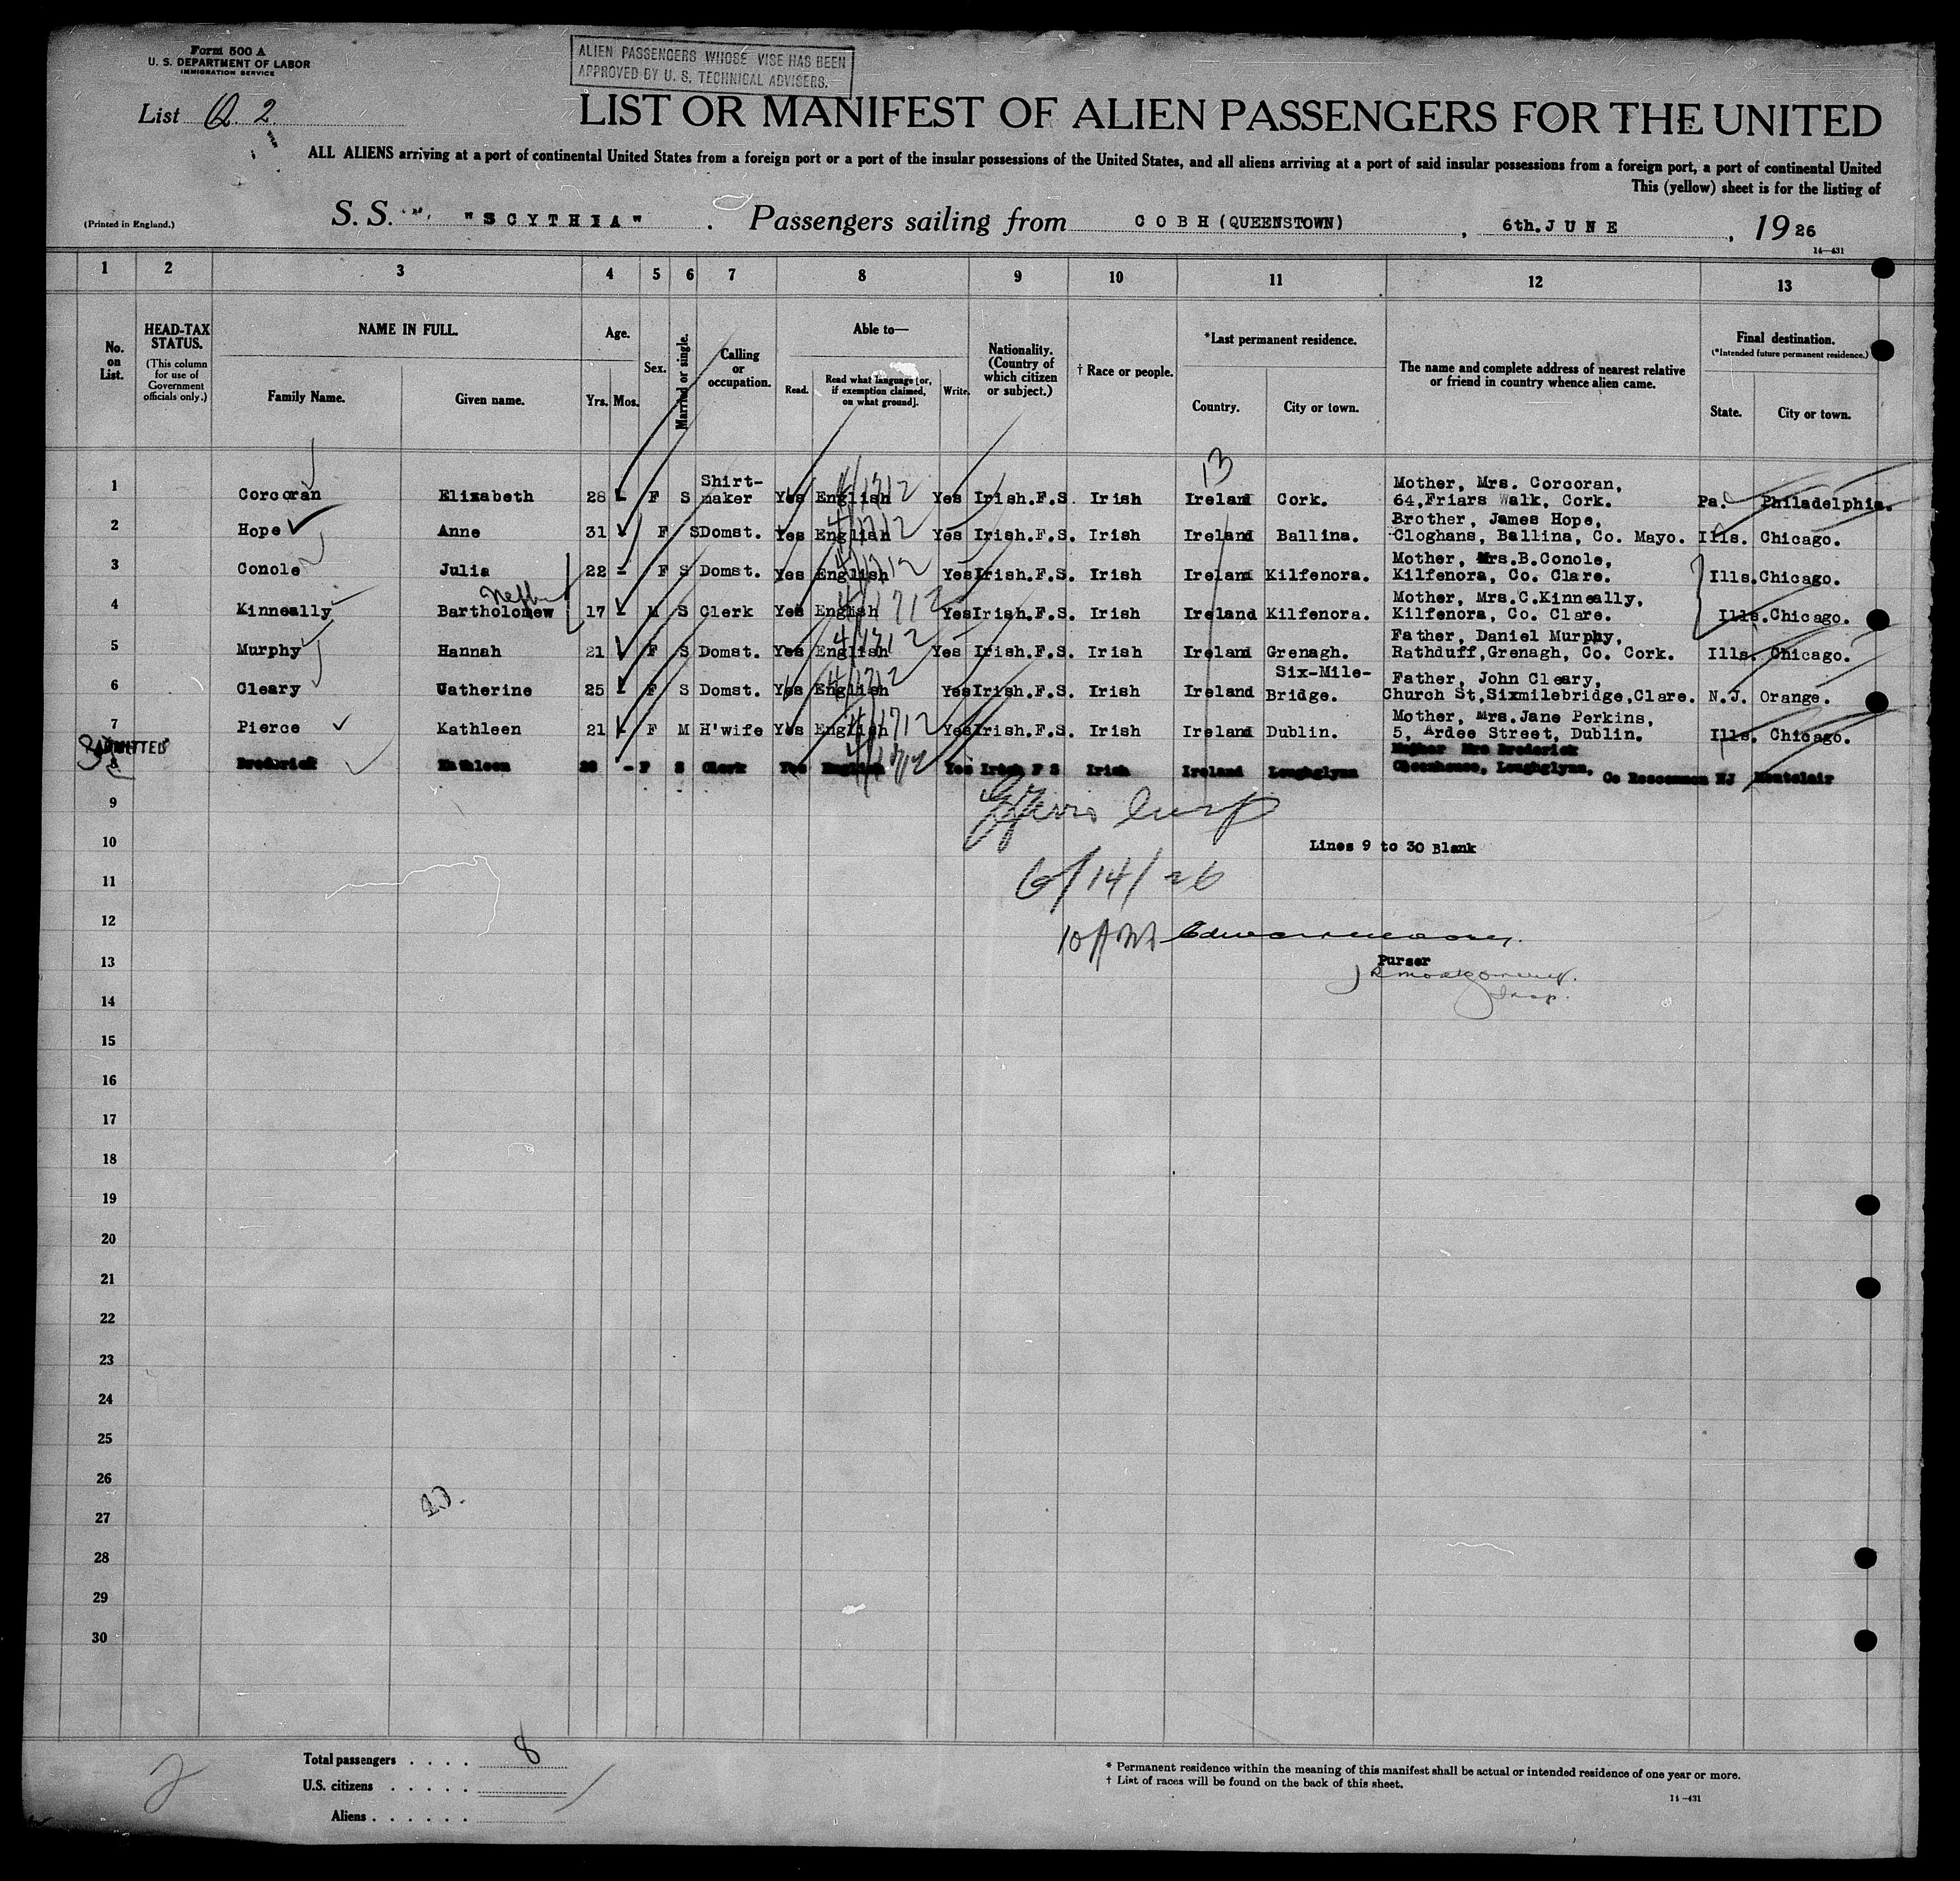 Form 500 A
U. S. DEPARTMENT OF LABOR
IMMIGRATION SERVICE
ALIEN PASSENGERS WHOSE VISE HAS BEEN
APPROVED BY U. S. TECHNICAL ADVISERS.
List Q. 2
LIST OR MANIFEST OF ALIEN PASSENGERS FOR THE UNITED
ALL ALIENS arriving at a port of continental United States from a foreign port or a port of the insular possessions of the United States, and all aliens arriving at a port of said insular possessions from a foreign port, a port of continental United
This (yellow) sheet is for the listing of
(Printed in England.)
S. S. "SCYTHIA" . Passengers sailing from COBH (QUEENSTOWN) , 6th. JUNE , 1926
14—431
1 2 3 4 5 6 7 8 9 10 11 12 13
No. on List.
HEAD-TAX STATUS.
(This column for use of Government officials only.)
NAME IN FULL.
Family Name. Given name.
Age.
Yrs. Mos.
Sex.
Married or single.
Calling or occupation.
Able to—
Read. Read what language [or, if exemption claimed, on what ground]. Write.
Nationality. (Country of which citizen or subject.)
† Race or people.
*Last permanent residence.
Country. City or town.
The name and complete address of nearest relative or friend in country whence alien came.
Final destination.
(*Intended future permanent residence.)
State. City or town.
13
1 Corcoran Elizabeth 28 - F S Shirt-maker Yes English Yes Irish.F.S. Irish Ireland Cork. Mother, Mrs. Corcoran, 64,Friars Walk, Cork. Pa. Philadelphia.
4/1712
2 Hope Anne 31 - F S Domst. Yes English Yes Irish.F.S. Irish Ireland Ballina. Brother, James Hope, Cloghans, Ballina, Co. Mayo. Ills. Chicago.
4/1712
3 Conole Julia 22 - F S Domst. Yes English Yes Irish.F.S. Irish Ireland Kilfenora. Mother, Mrs.B.Conole, Kilfenora, Co. Clare. Ills. Chicago.
4/1712
4 Kinneally Bartholomew 17 - M S Clerk Yes English Yes Irish.F.S. Irish Ireland Kilfenora. Mother, Mrs.C.Kinneally, Kilfenora, Co. Clare. Ills. Chicago.
4/1712
5 Murphy Hannah 21 F S Domst. Yes English Yes Irish.F.S. Irish Ireland Grenagh. Father, Daniel Murphy, Rathduff,Grenagh, Co. Cork. Ills. Chicago.
4/1712
6 Cleary Catherine 25 - F S Domst. Yes English Yes Irish.F.S. Irish Ireland Six-Mile-Bridge. Father, John Cleary, Church St,Sixmilebridge,Clare. N.J. Orange.
4/1712
7 Pierce Kathleen 21 - F M H'wife Yes English Yes Irish.F.S. Irish Ireland Dublin. Mother, Mrs.Jane Perkins, 5, Ardee Street, Dublin. Ills. Chicago.
4/1712
ADMITTED
8 Broderick Kathleen - F S Clerk Yes English Yes Irish F S Irish Ireland Loughglynn Mother Mrs Broderick Loughglynn, Co Roscommon NJ Montclair
9
10 Lines 9 to 30 Blank
11 6/14/26
12 10 AM
13 Purser
J R Montgomery.
Insp.
14
15
16
17
18
19
20
21
22
23
24
25
26
40.
27
28
29
30
2
Total passengers . . . . 8
U.S. citizens . . . . .
Aliens . . . . . .
* Permanent residence within the meaning of this manifest shall be actual or intended residence of one year or more.
† List of races will be found on the back of this sheet.
14—431